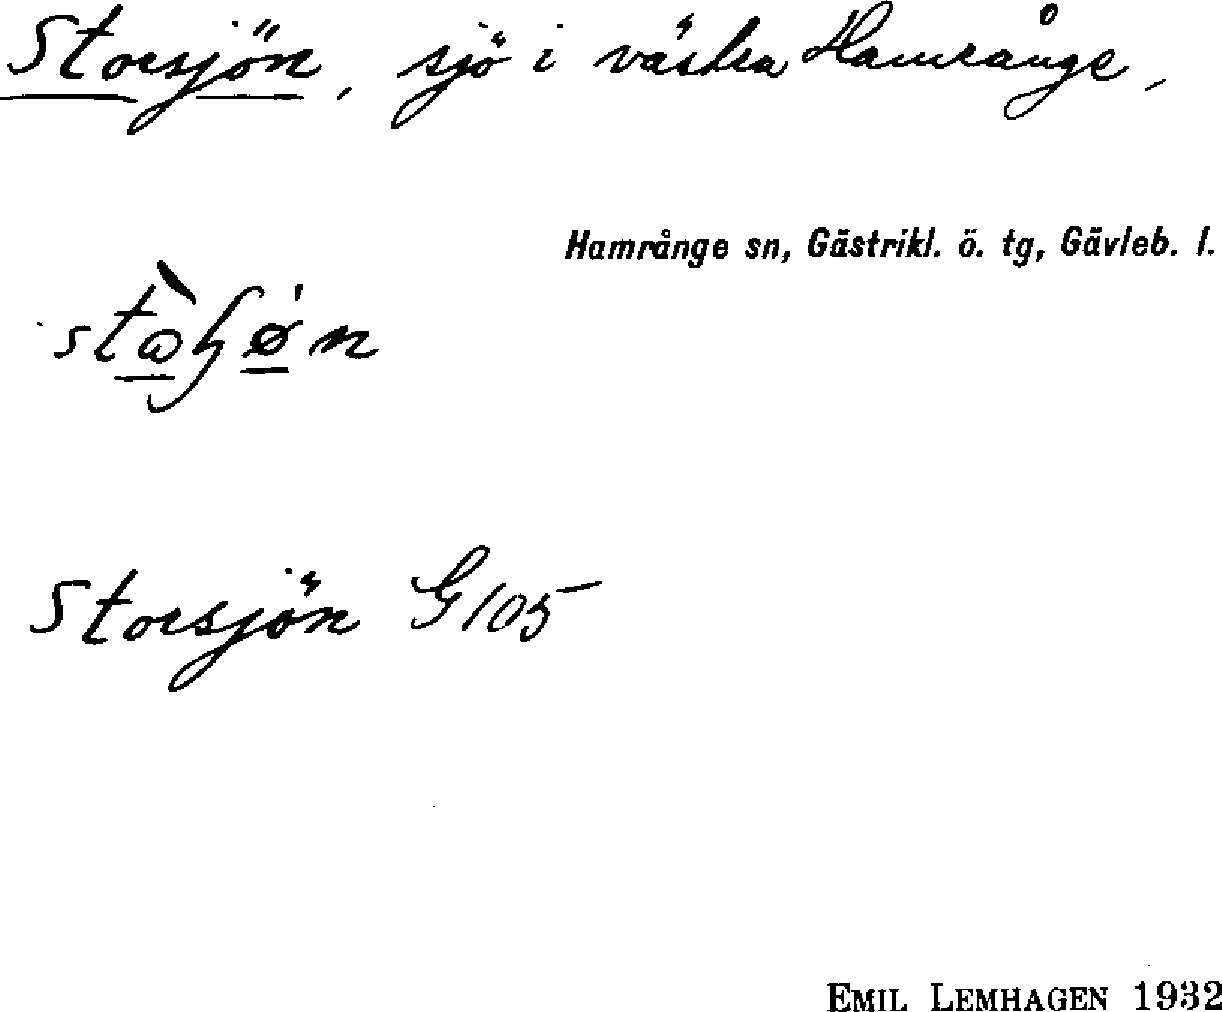 Storsjön, sjö i västra Hamrånge,
Hamrånge sn, Gästrikl. ö. tg, Gävleb. l.
Storsjön G 105
EMIL LEMHAGEN 1932